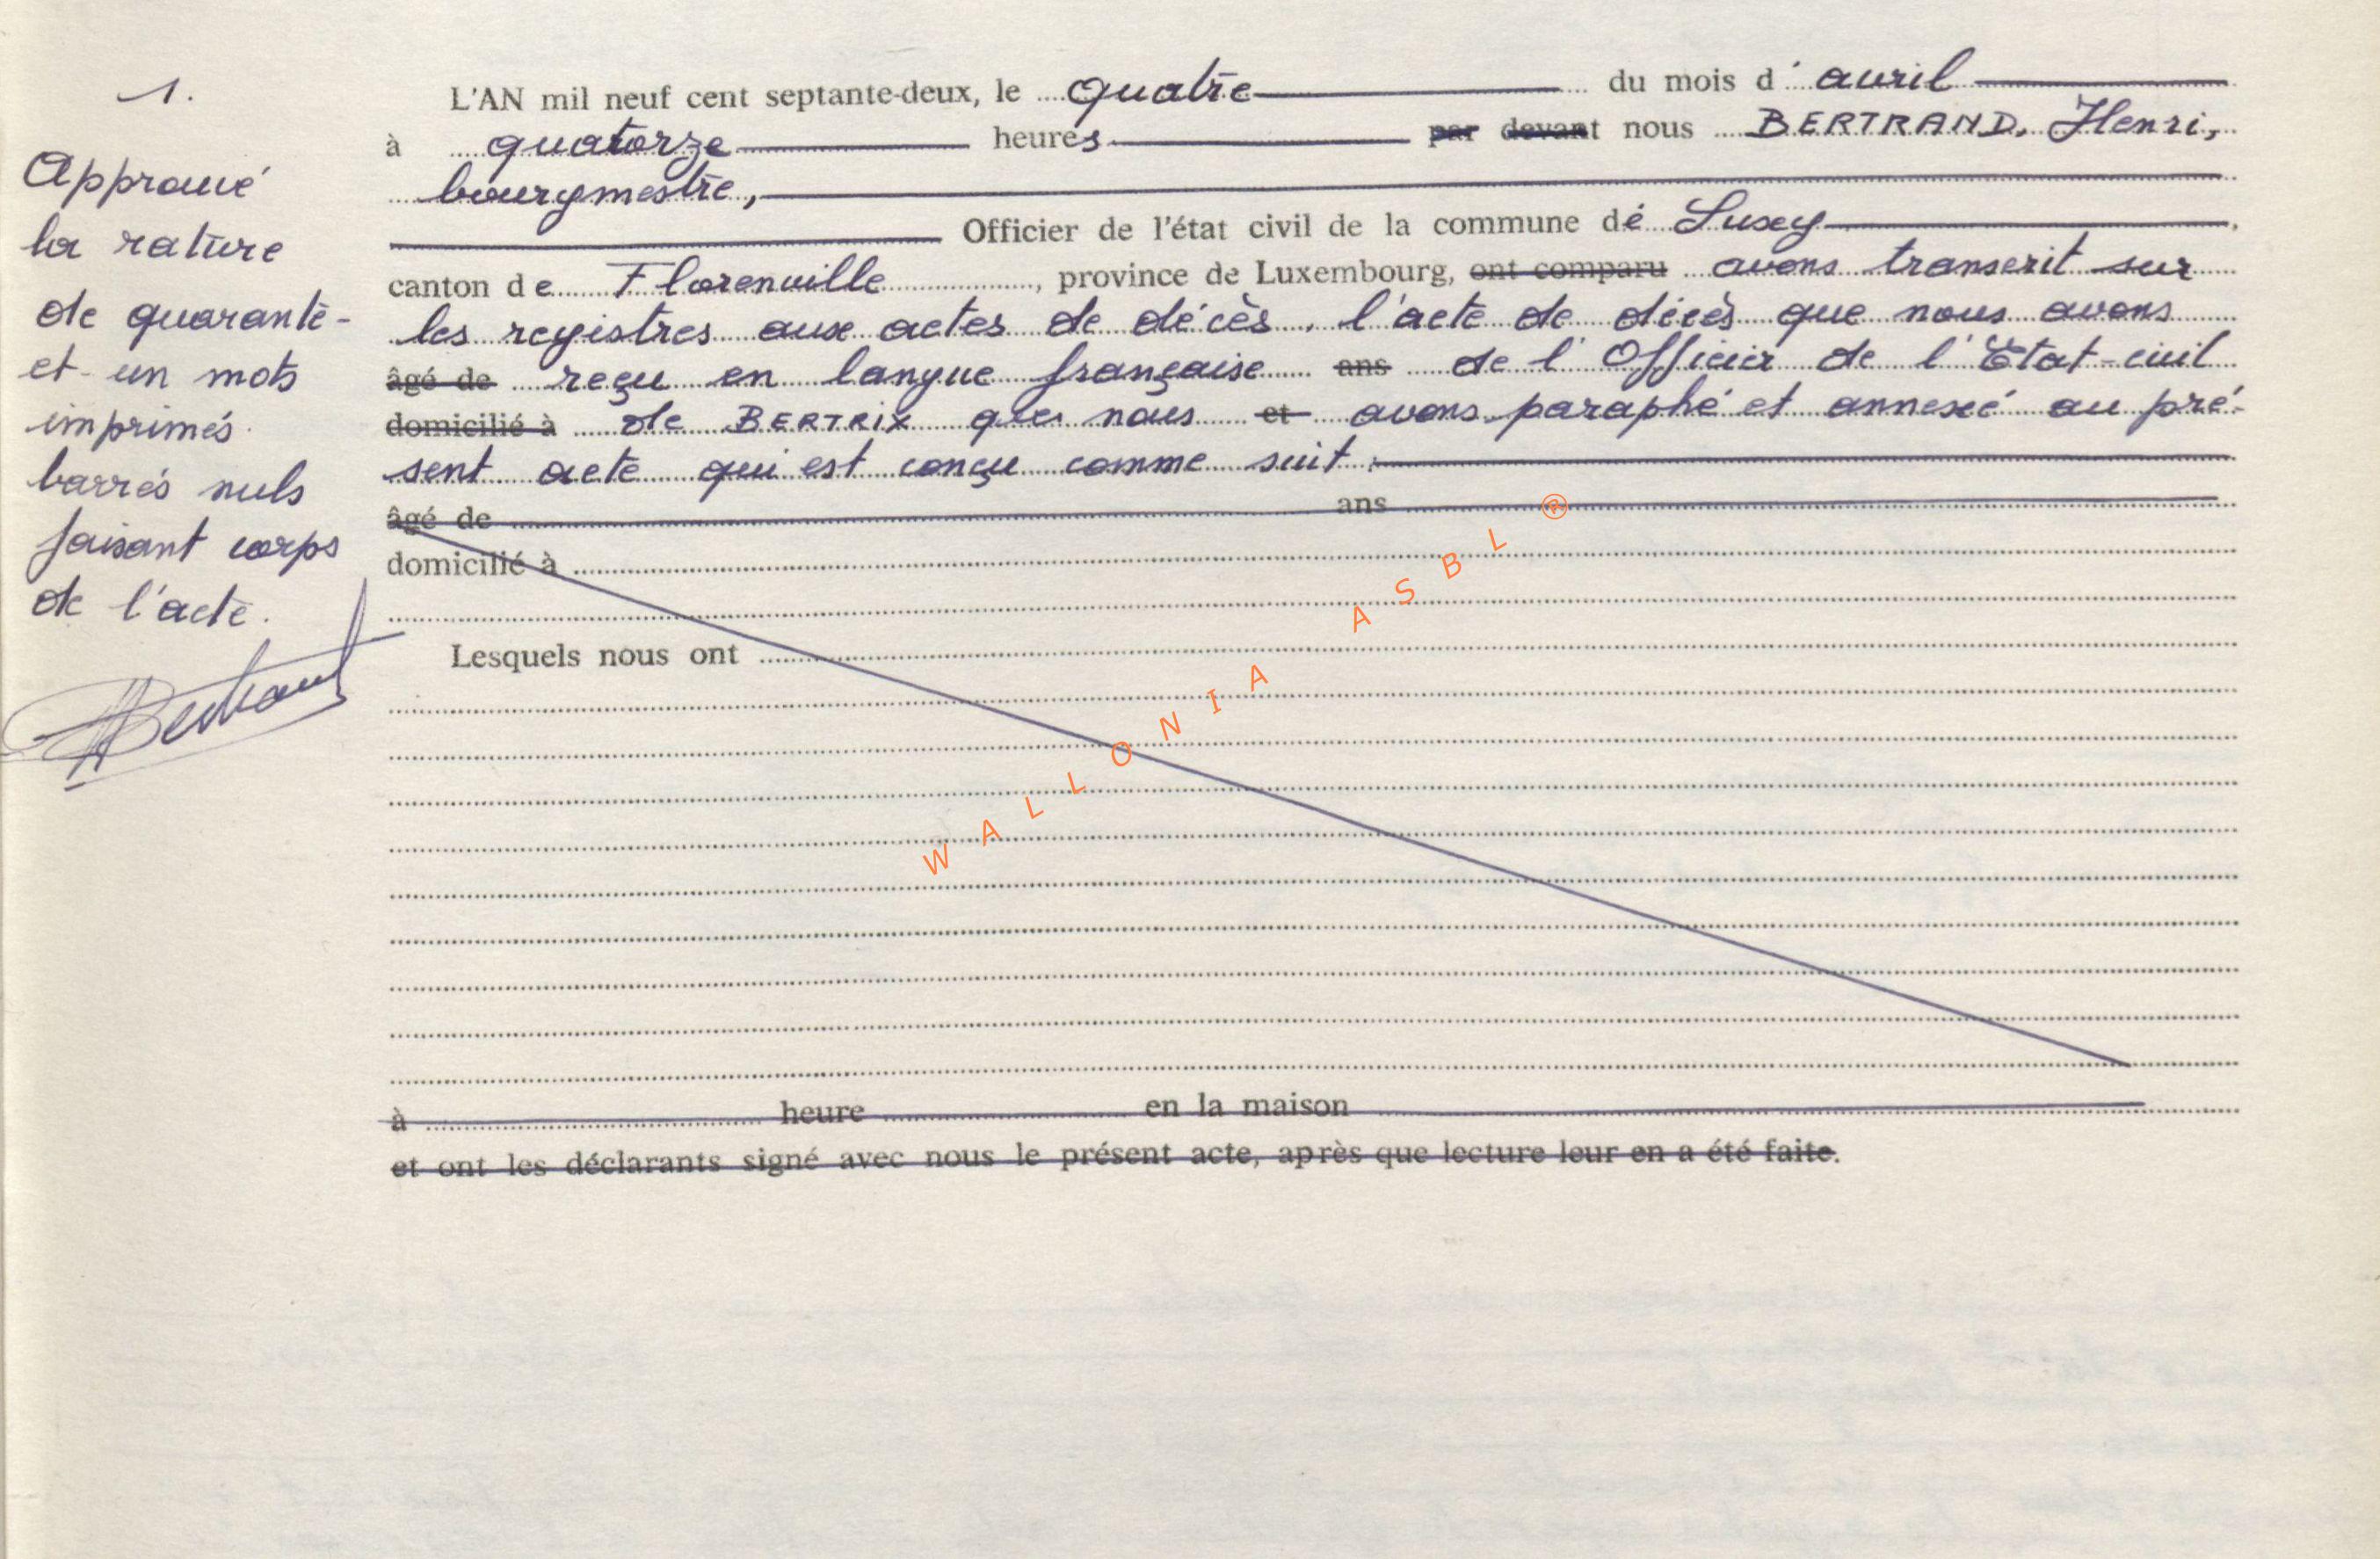 1.
Approuvé
la rature
de quarante-
et-un mots
imprimés
barrés nuls
faisant corps
de l'acte.
HBertrand
L'AN mil neuf cent septante-deux, le quatre du mois d'avril
à quatorze heures par devant nous BERTRAND, Henri,
bourgmestre,
Officier de l'état civil de la commune de Suxy,
canton de Florenville, province de Luxembourg, ont comparu avons transcrit sur
les registres aux actes de décès, l'acte de décès que nous avons
âgé de reçu en langue française ans de l'Officier de l'Etat-civil
domicilié à de BERTRIX que nous et avons paraphé et annexé au pré-
sent acte qui est conçu comme suit :
âgé de ans
domicilié à
Lesquels nous ont
à heure en la maison
et ont les déclarants signé avec nous le présent acte, après que lecture leur en a été faite.
WALLONIA ASBL ®